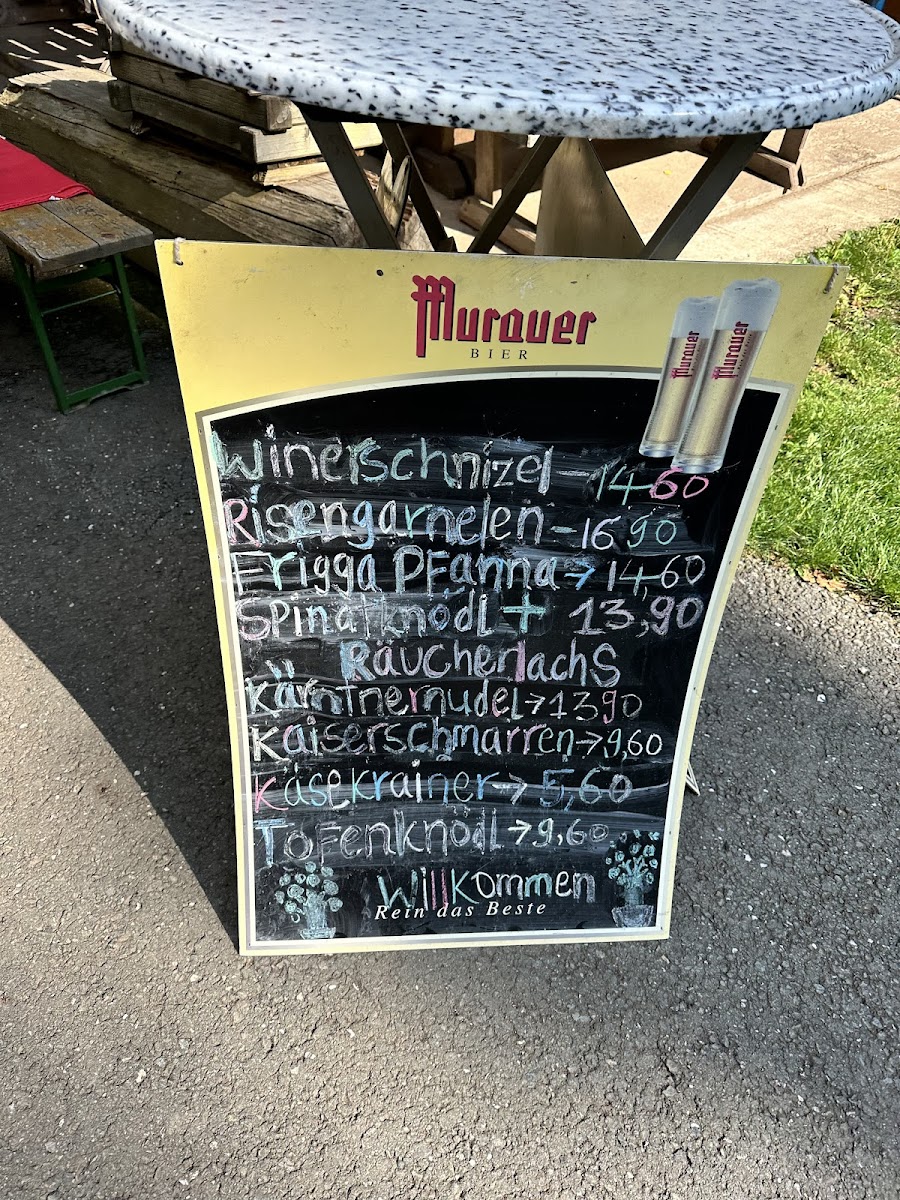 Murauer
BIER
Murauer
Murauer
Winerschnizel - 14 60
Risengarnelen - 16 90
Frigga PFanna → 14,60
Spinatknödl + 13,90
Räucherlachs
Kärntnernudel → 13 90
Kaiserschmarren → 9,60
Käsekrainer → 5,60
Tofenknödl → 9,60
Willkommen
Rein das Beste